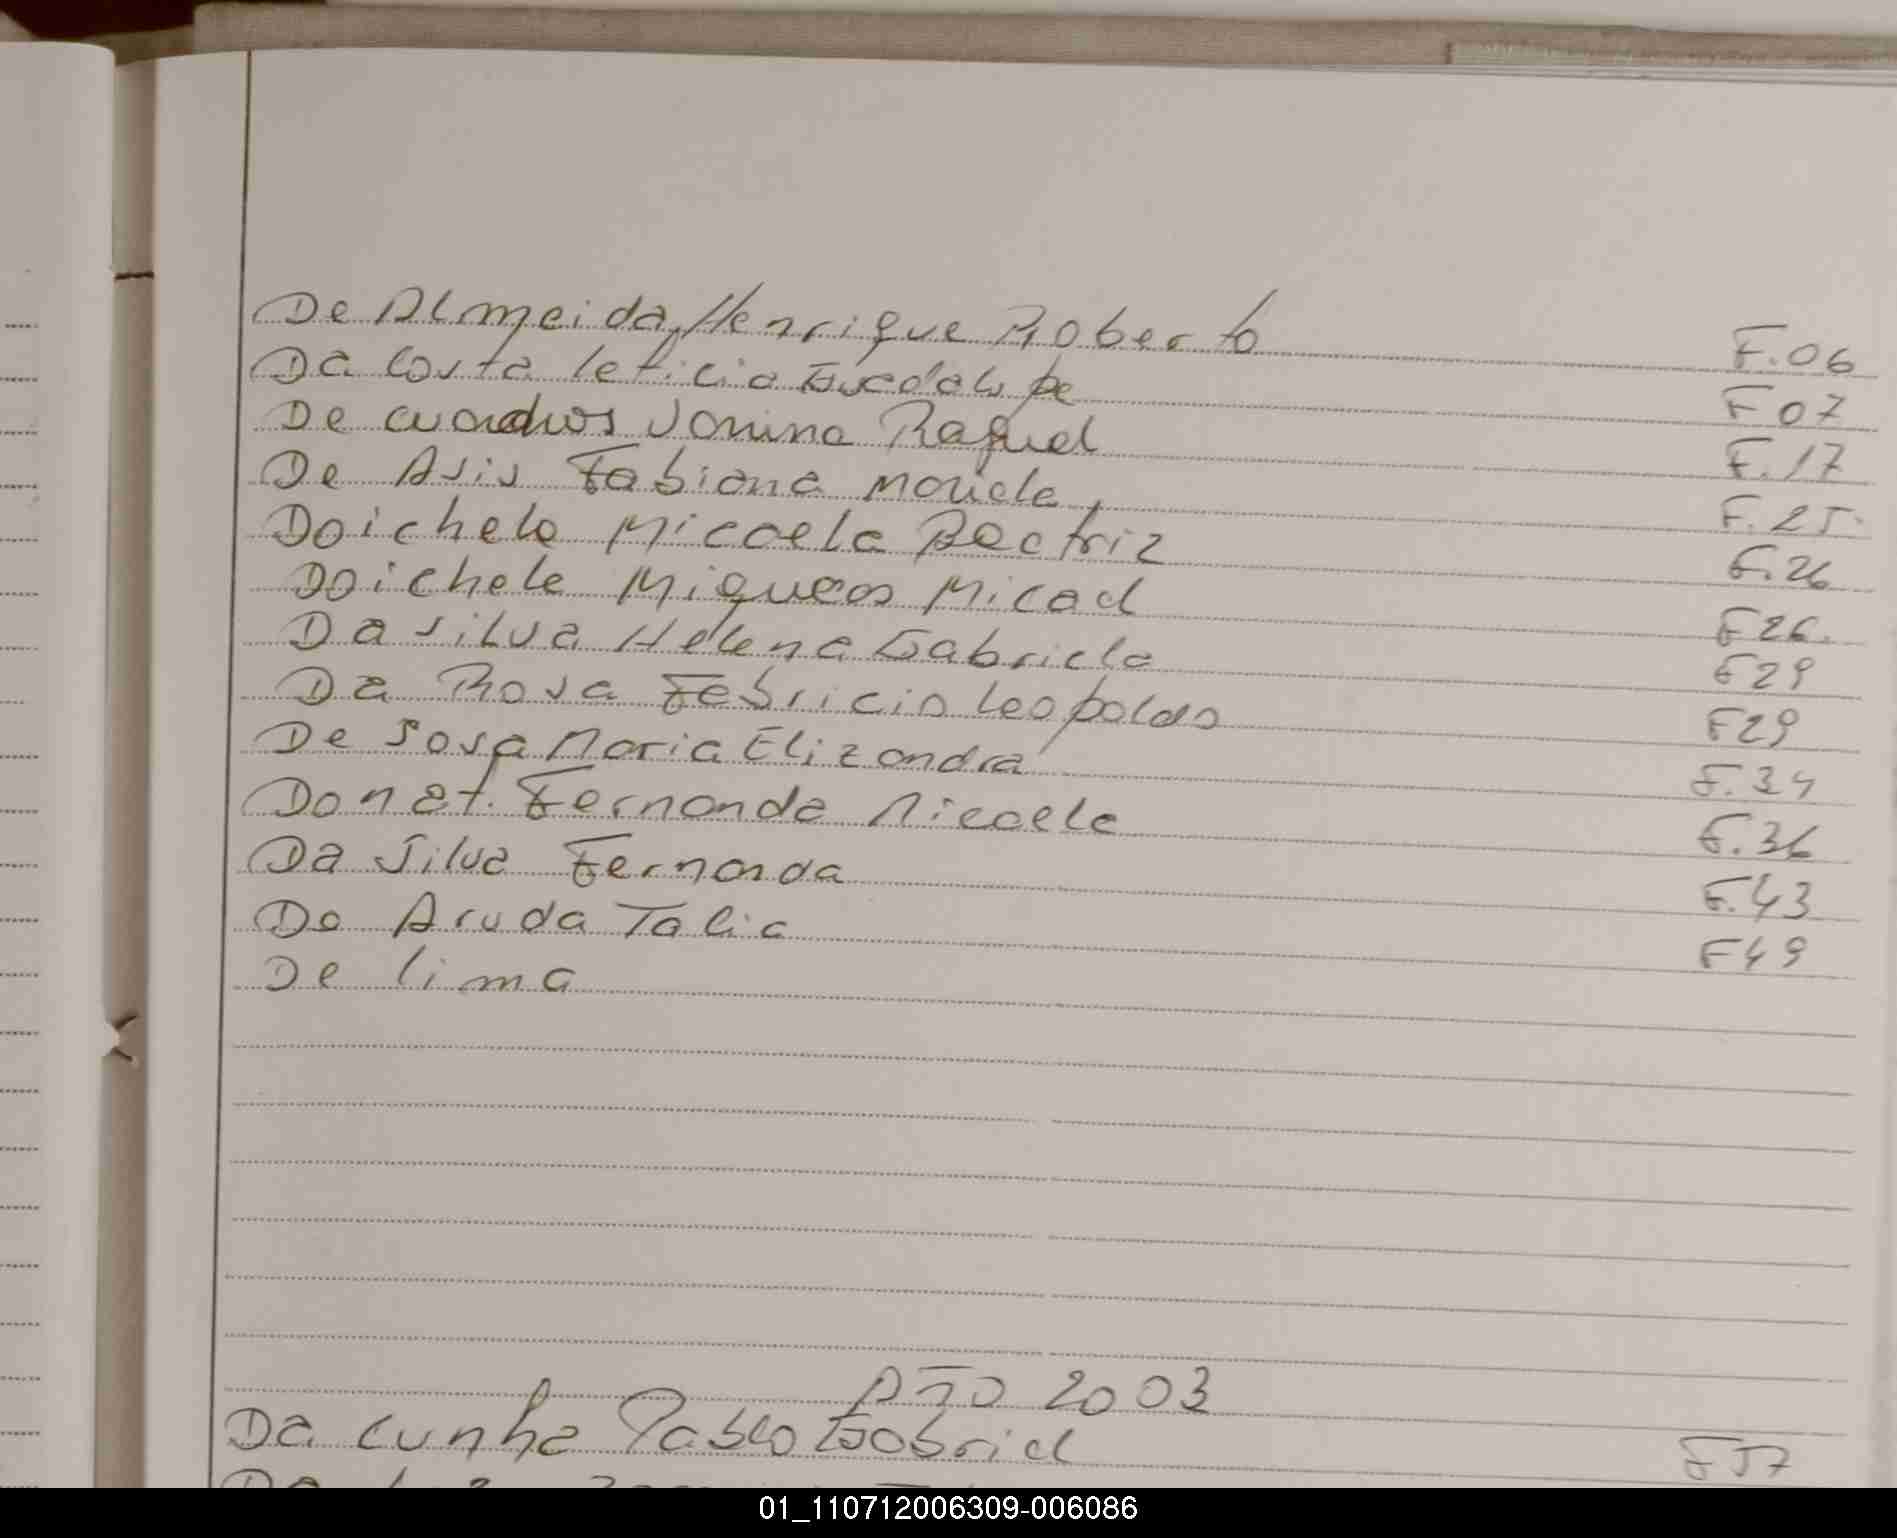 De Almeida, Henrique Roberto F.06
Da Costa Leticia Guadalupe F 07
De cuadros Janina Raquel F.17
De Asis Fabiana F.25.
Doichele Micaela Beatriz F.26
Doichele Miqueas Micael F26.
Da silva Helena Gabriela F29
Da Rosa Febricio Leopoldo F29
De Sosa Maria Elizandra F.34
Donat. Fernanda Micaela F.36
Da Silva Fernanda F.43
De Aruda Talia F49
De lima
AÑO 2003
Da cunha Pablo Gabriel F57
01_110712006309-006086